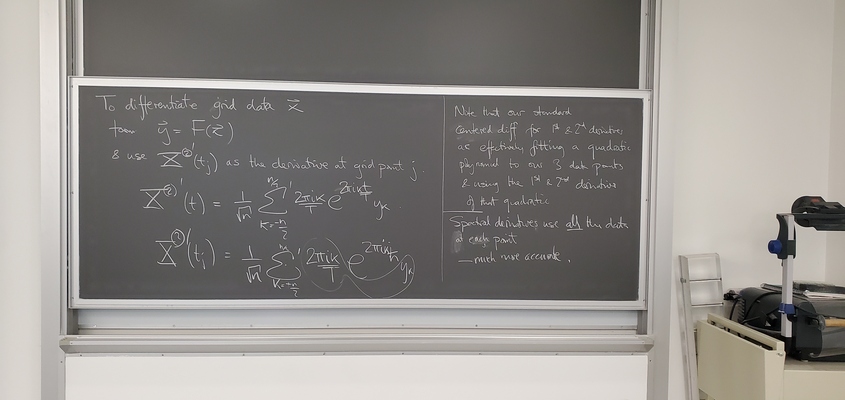 To differentiate grid data x⃗
form y⃗ = F(x⃗)
& use X^②'(t_j) as the derivative at grid point j.
X^②'(t) = 1/√n Σ'_{k=-n/2}^{n/2} 2πik/T e^{2πikt/T} y_k
X^②'(t_j) = 1/√n Σ'_{k=-n/2}^{n/2} 2πik/T e^{2πikj/n} y_k
Note that our standard
centered diff for 1st & 2nd derivatives
as effectively fitting a quadratic
polynomial to our 3 data points
& using the 1st & 2nd derivative
of that quadratic
Spectral derivatives use all the data
at each point
— much more accurate.